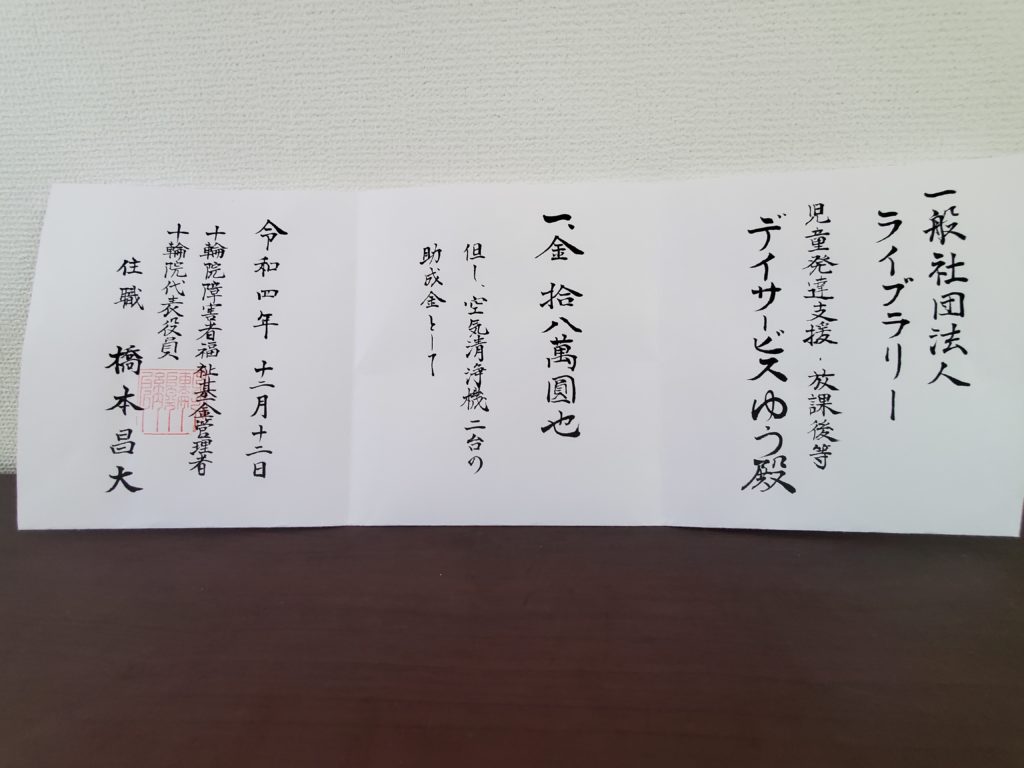 一般社団法人
ライブラリー
児童発達支援・放課後等
デイサービスゆう殿
一、金 拾八萬圓也
但し、空気清浄機二台の
助成金として
令和四年 十二月十二日
十輪院障害者福祉基金管理者
十輪院代表役員
住職 橋本昌大